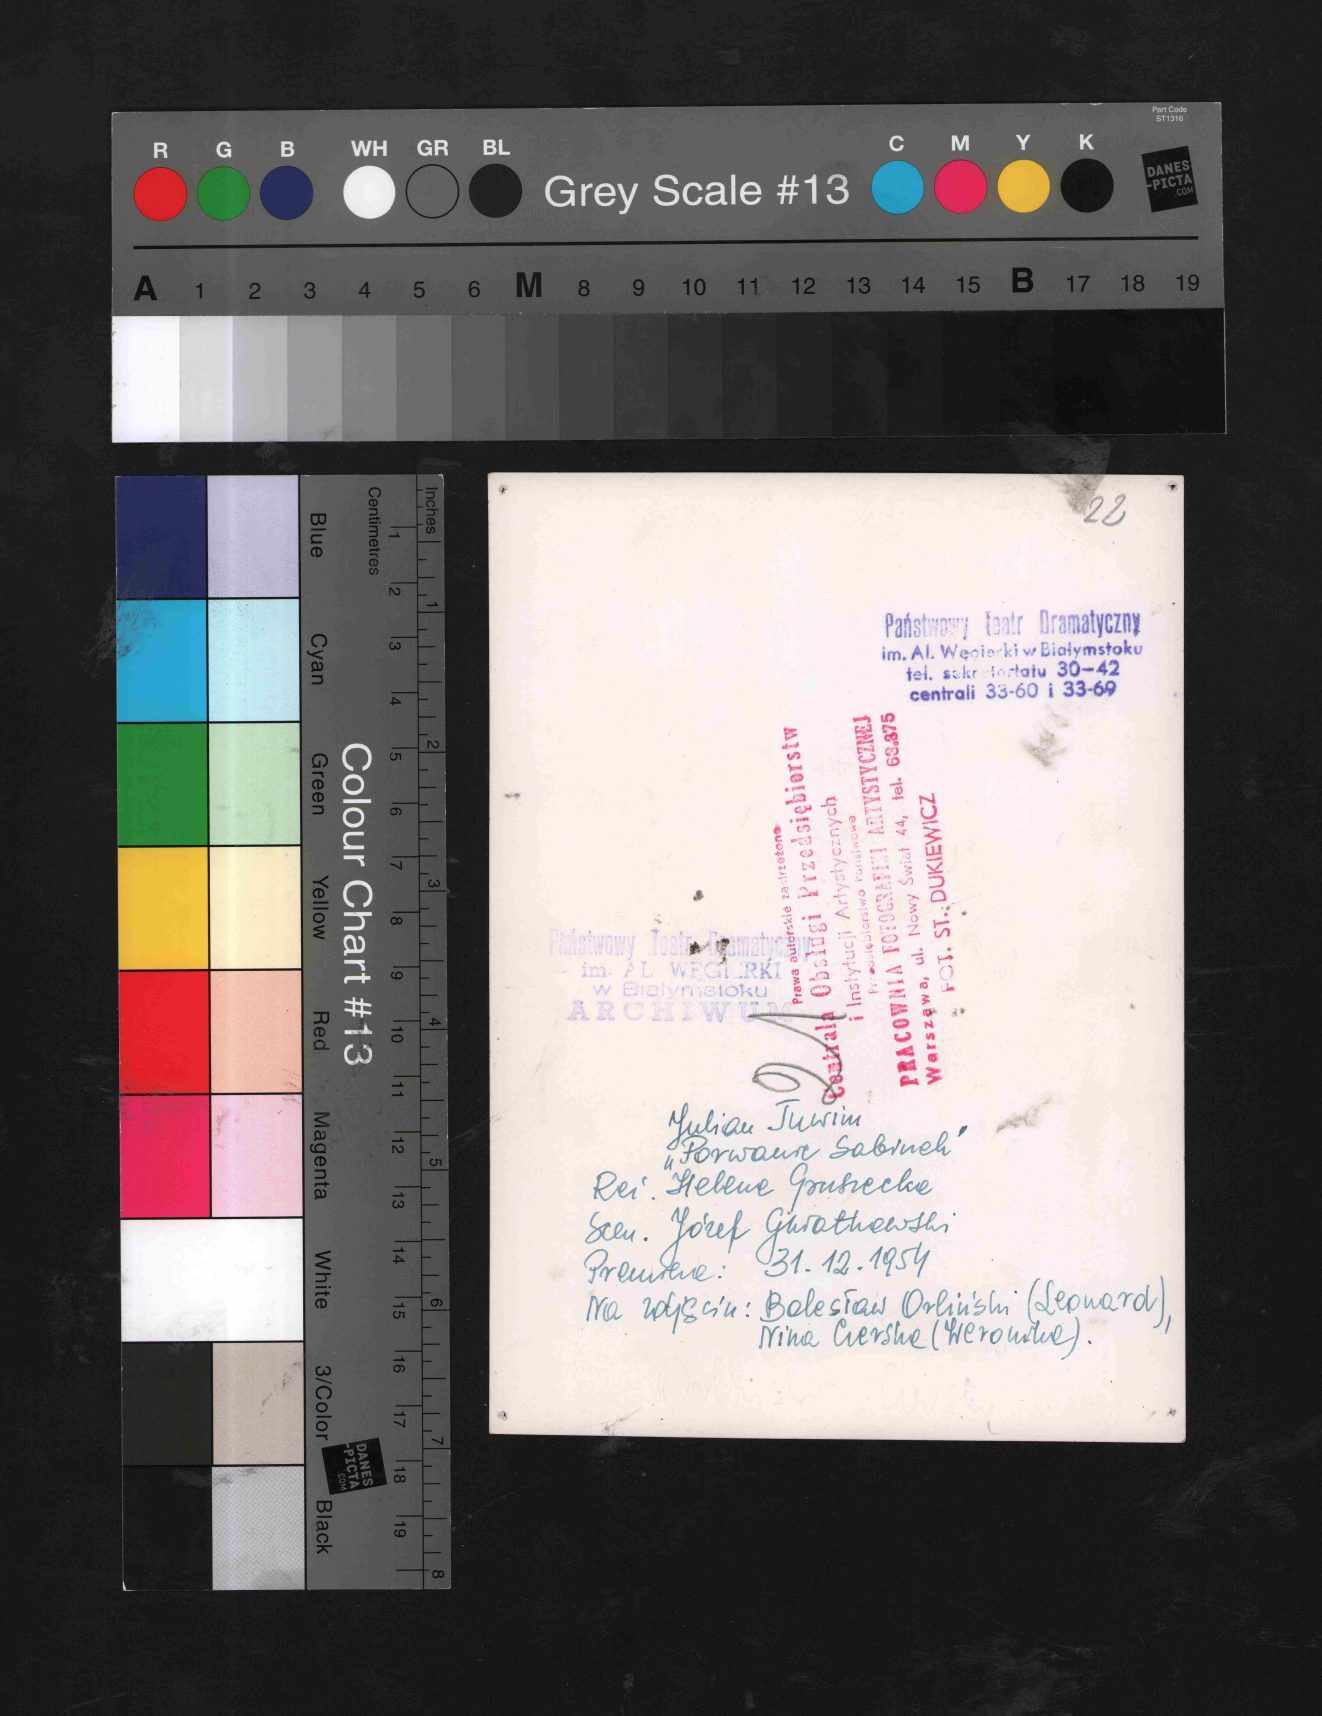 Part Code
ST1316
R G B WH GR BL
Grey Scale #13
C M Y K
DANES
-PICTA
.COM
A 1 2 3 4 5 6 M 8 9 10 11 12 13 14 15 B 17 18 19
Colour Chart #13
Blue
Cyan
Green
Yellow
Red
Magenta
White
3/Color
Black
Centimetres
1 2 3 4 5 6 7 8 9 10 11 12 13 14 15 16 17 18 19
Inches
1 2 3 4 5 6 7 8
DANES
-PICTA
.COM
22
Państwowy Teatr Dramatyczny
im. Al. Węgierki w Białymstoku
tel. sekretariatu 30-42
centrali 33-60 i 33-69
Prawa autorskie zastrzeżone
Centrala Obsługi Przedsiębiorstw
i Instytucji Artystycznych
Przedsiębiorstwo Państwowe
PRACOWNIA FOTOGRAFIKI ARTYSTYCZNEJ
Warszawa, ul. Nowy Świat 44, tel. 63.875
FOT. ST. DUKIEWICZ
Państwowy Teatr Dramatyczny
im. AL. WĘGIERKI
w Białymstoku
ARCHIWUM
21
Julian Tuwim
„Porwanie Sabinek"
Reż. Helena Gruszecka
Scen. Józef Gwiathowski
Premiera: 31.12.1954
Na zdjęciu: Bolesław Orliński (Leonard),
Nina Czerska (Weronika).